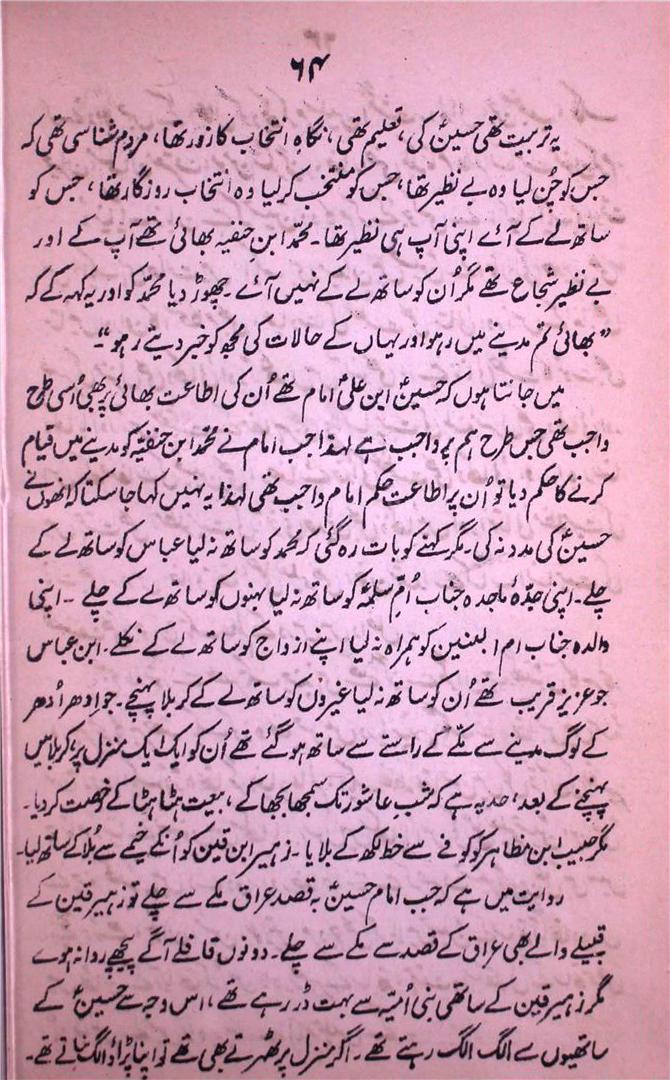 ۶۴
یہ تربیت تھی حسینؑ کی، تعلیم تھی، نگاہِ انتخاب کا زور تھا، مردم شناسی تھی کہ
جس کو چُن لیا وہ بے نظیر تھا، جس کو منتخب کر لیا وہ انتخاب روزگار تھا، جس کو
ساتھ لے کے آئے اپنی آپ ہی نظیر تھا۔ محمد ابنِ حنفیہ بھائی تھے آپ کے اور
بے نظیر شجاع تھے مگر اُن کو ساتھ لے کے نہیں آئے۔ چھوڑ دیا محمّد کو اور یہ کہہ کے کہ
”بھائی تم مدینے میں رہو اور یہاں کے حالات کی مجھ کو خبر دیتے رہو“۔
میں جانتا ہوں کہ حسینؑ ابن علیؑ امام تھے اُن کی اطاعت بھائی پر بھی اُسی طرح
واجب تھی جس طرح ہم پر واجب ہے لہذا جب امام نے محمد ابن حنفیّہ کو مدینے میں قیام
کرنے کا حکم دیا تو اُن پر اطاعت حکم امام واجب تھی لہذا یہ نہیں کہا جا سکتا کہ انھوں نے
حسینؑ کی مدد نہ کی۔ مگر کہنے کو بات رہ گئی کہ محمد کو ساتھ نہ لیا عباس کو ساتھ لے کے
چلے۔ اپنی جدّۂ ماجدہ جناب اُمّ سلمہؓ کو ساتھ نہ لیا بہنوں کو ساتھ لے کے چلے ۔ اپنی
والدہ جناب ام البنین کو ہمراہ نہ لیا اپنے ازواج کو ساتھ لے کے نکلے۔ ابن عباس
جو عزیز قریب تھے اُن کو ساتھ نہ لیا غیروں کو ساتھ لے کے کربلا پہنچے۔ جو اِدھر اُدھر
کے لوگ مدینے سے مکّے کے راستے سے ساتھ ہو گئے تھے اُن کو ایک ایک منزل پر، کربلا میں
پہنچنے کے بعد، حد یہ ہے کہ شبِ عاشور تک سمجھا بجھا کے، بیعت ہٹا ہٹا کے رخصت کر دیا۔
مگر حبیب ابن مظاہر کو کوفے سے خط لکھ کے بلایا ۔ زہیر ابن قین کو اُنکے خیمے سے بُلا کے ساتھ لیا۔
روایت میں ہے کہ جب امام حسینؑ بہ قصد عراق مکے سے چلے تو زہیر قین کے
قبیلے والے بھی عراق کے قصد سے مکے سے چلے۔ دونوں قافلے آگے پیچھے روانہ ہوے
مگر زہیر قین کے ساتھی بنی اُمیّہ سے بہت ڈر رہے تھے، اس وجہ سے حسینؑ کے
ساتھیوں سے الگ الگ رہتے تھے۔ اگر منزل پر ٹھہرتے بھی تھے تو اپنا پڑاؤ الگ بناتے تھے۔